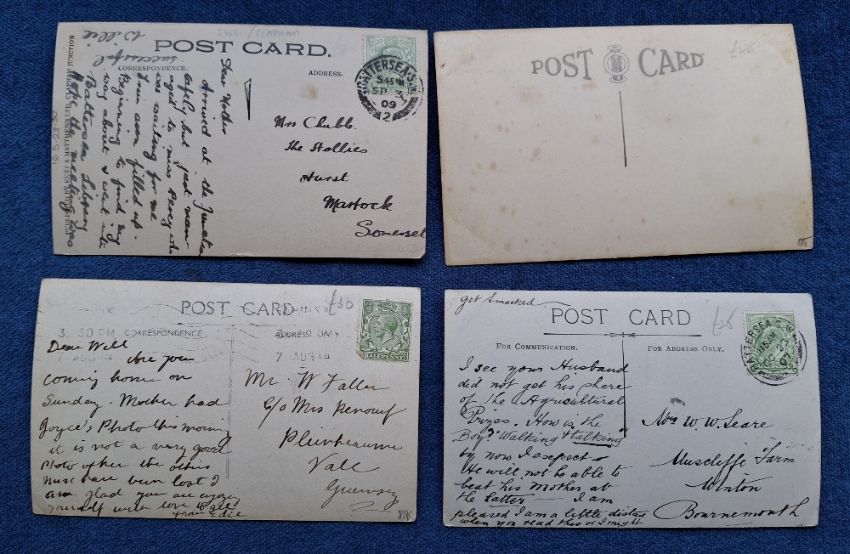 SW2 / CLAPHAM
POST CARD.
CORRESPONDENCE.
ADDRESS.
BATTERSEA. S.
5.45 PM
SP 3
09
Dear Mother
Arrived at the Junction
safely but just man-
aged to miss Percy who
was waiting for me
Train soon filled up.
Beginning to find my
way about & went into
Battersea Library
Hope the meeting was
successful
Willie
Mrs Chubb.
The Hollies
Hurst
Martock
Somerset
POST CARD
POST CARD
3. 30 PM
CORRESPONDENCE
ADDRESS ONLY
7 AUG 14
7 AUG 14
£30
HALFPENNY
Dear Will
Are you
coming home on
Sunday. Mother had
Joyce's Photo this morning
it is not a very good
Photo after the others
must have been lost I
am glad you are enjoy
yourself with love to all
from Edie
Mr. W Faller
c/o Mrs Renouf
Vale
Guernsey
Get Smocked
POST CARD
FOR COMMUNICATION.
FOR ADDRESS ONLY.
BATTERSEA S.W.
07
I see your Husband
did not get his share
of the Agricultural
Prizes. How is the
Boy? "Walking & talking"
by now I expect
He will not be able to
beat his Mother at
the latter — I am
pleased I am a little distance
when you read this or I might
Mrs W. W. Seare
Muscliffe Farm
Winton
Bournemouth